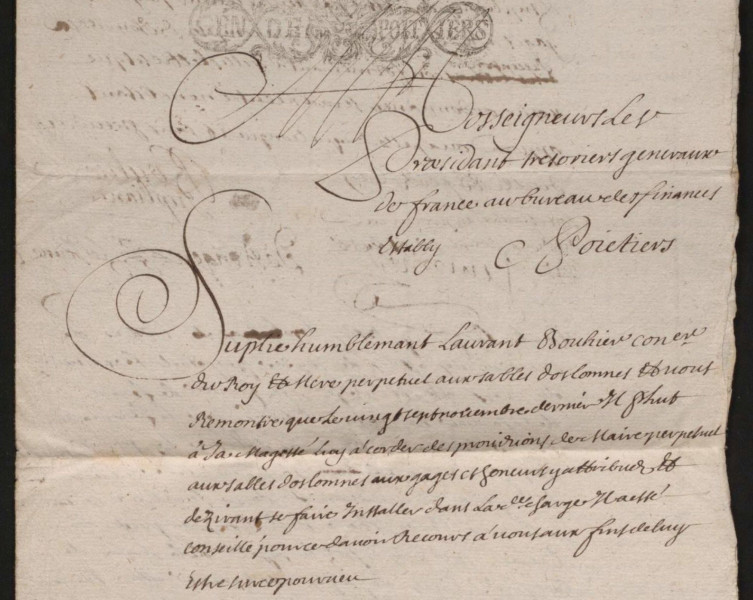 GEN DE POITIERS
Nosseigneurs Les
Præsidant tresoriers generaux
de france au bureau des finances
estably A Poictiers
Suplie humblemant Laurant Bouhier con.er
du Roy et Mere perpetuel aux sables dolonnes et vous
Remontre que Le vingt sept novembre dernier Il plut
à sa Magesté luy acorder des provisions de Maire perpetuel
aux sables dolonnes aux gages et honeurs y attribuez et
dezirant se faire Installer dans La d.e charge Il a esté
conseillé pour ce davoir Recours à vous aux fins de luy
Estre sur ce pourveu